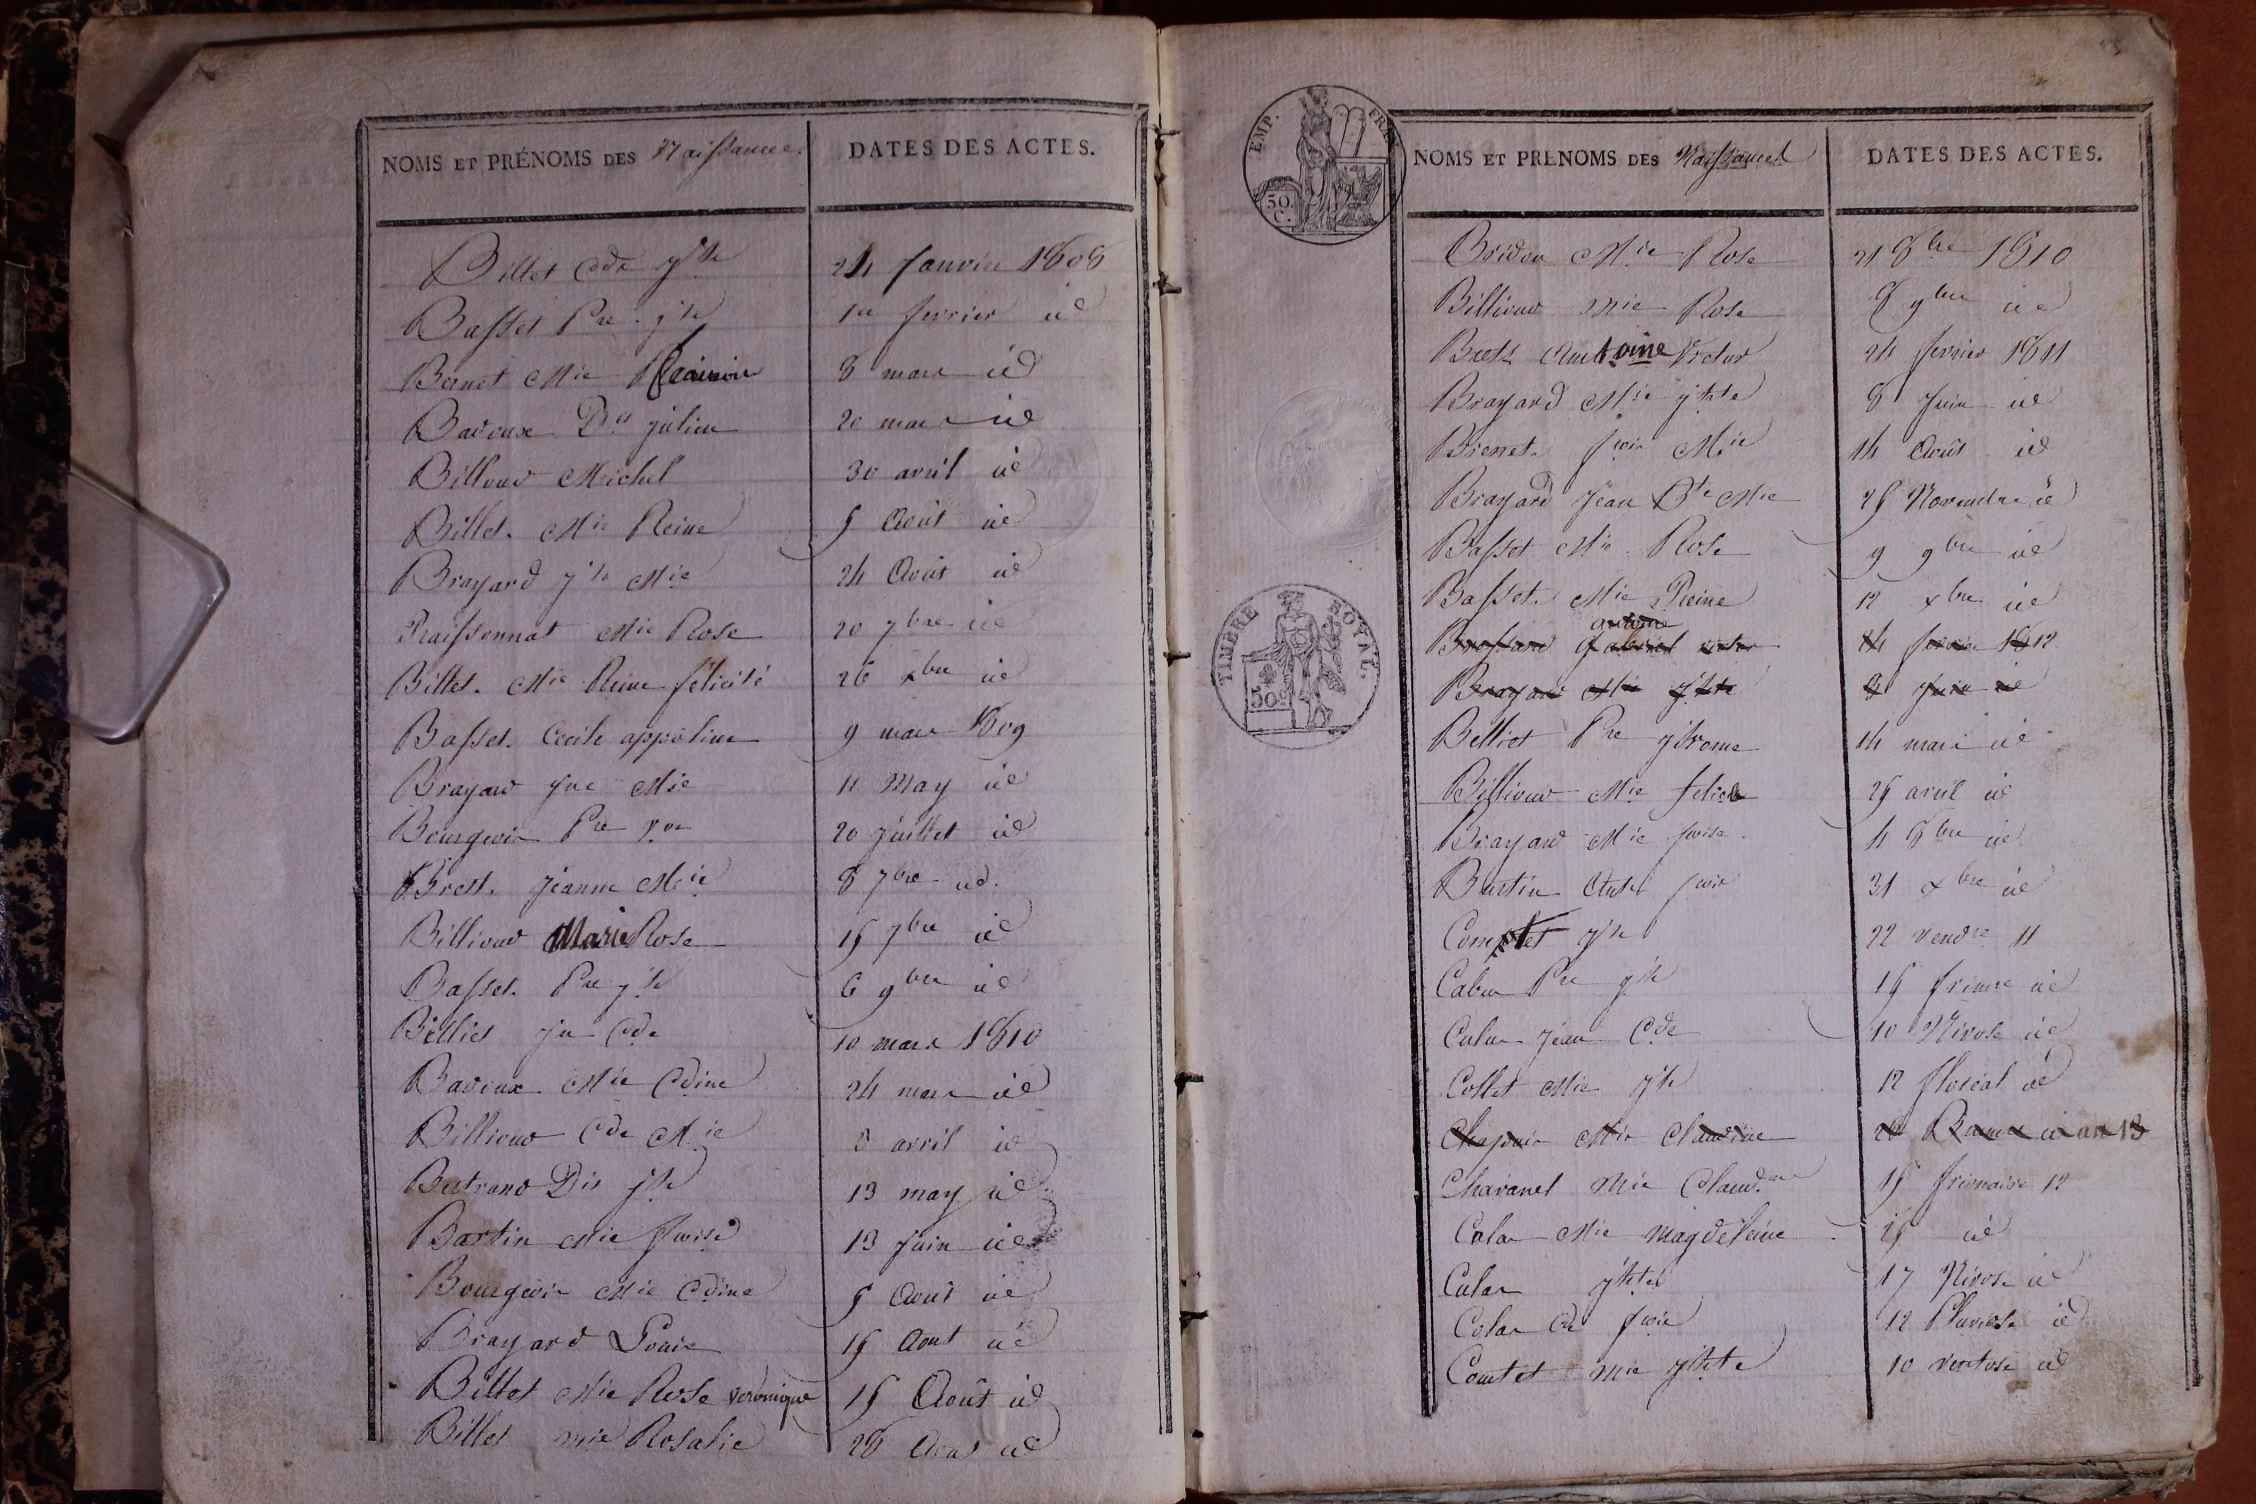 NOMS ET PRÉNOMS DES Naissances. DATES DES ACTES.
Billet Cde jh 24 Janvier 1808
Basset Pre jh 1er fevrier id
Bernet Mie 8 mars id
Bavoux Dis julien 20 mars id
Billoud Michel 30 avril id
Billet Mie Reine 5 Août id
Brayard jh Mie 24 Août id
Mie Rose 20 7bre id
Billet Mie Reine félicité 26 xbre id
Basset Cecile appoline 9 mars 1809
Brayard Mie 11 May id
Bourgeois Pre 20 Juillet id
Brest Jeanne Mie 8 7bre id
Billioud Marie Rose 15 7bre id
Basset Pre jh 6 9bre id
Billiet Cde 10 mars 1810
Bavoux Mie Cdine 24 mars id
Billioud Cde Mie 8 avril id
Bertrand Dis jh 13 may id
Bartin Mie fcoise 13 Juin id
Bourgeois Mie Cdine 5 Août id
Brayard Louis 15 Aout id
Billet Mie Rose veronique 15 Août id
Billet mie Rosalie 28 Aout id
EMP. FRANÇ.
50. C.
TIMBRE ROYAL.
50c
NOMS ET PRÉNOMS DES Naissances DATES DES ACTES.
Mie Rose 21 8bre 1810
Billioud Mie Rose 8 9bre id
Antoine Victor 24 fevrier 1811
Brayard Mie jhte 8 Juin id
fcois Mie 14 Août id
Brayard Jean Bte Mie 25 Novembre id
Basset Mie Rose 9 9bre id
Basset Mie Reine 12 xbre id
antoine
Gabriel victor 24 fevrier 1812
Brayard Mie jhte 8 Juin id
Belliet Pre jérome 14 mars id
Billioud Mie felicité 25 avril id
Brayard Mie fcoise 4 8bre id
Bartin fcois 31 xbre id
Comptet jh 22 vendre 11
Pre jh 15 frimre id
Jean Cde 10 Nivose id
Collet Mie jh 12 floréal id
Mie Claudine an 13
Chavanel Mie Claudine 15 frimaire 12
Colas Mie magdeleine 25 id
jhte 17 Nivose id
Colas Cde fcois 12 Pluviose id
Comtet mie jhte 10 ventose id